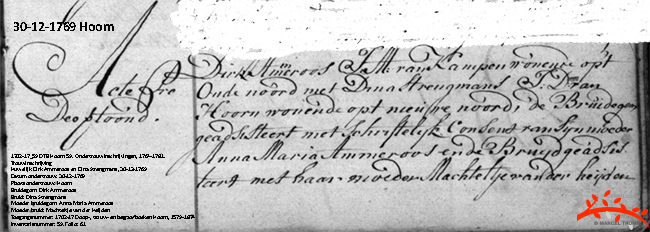 30-12-1769 Hoorn
Acte Pre
Deo ptoond.
Dirk Ammeroos J:M: van Kampen wonende op't
Oude noord met Dina Streugmans J: D: van
Hoorn wonende opt nieuwe noord, de Bruidegom
geadsisteert met schriftelijk Consent van sijn moeder
Anna Maria Ammeroos ende Bruyd geadsis
teert met haar moeder Machteltje van der heijden
1702-17, 59 DTB Hoorn 59. Ondertrouwinschrijvingen, 1769-1781.
Trouwinschrijving
Huwelijk Dirk Ammeroos en Dina Strengmans, 30-12-1769
Datum ondertrouw: 30-12-1769
Plaats ondertrouw: Hoorn
Bruidegom: Dirk Ammeroos
Bruid: Dina Strengmans
Moeder bruidegom: Anna Maria Ammeroos
Moeder bruid: Machteltje van der Heijden
Toegangsnummer: 1702-17 Doop-, trouw- en begraafboeken Hoorn, 1573-187
Inventarisnummer: 59, Folio: 61
© MARCEL TROMP